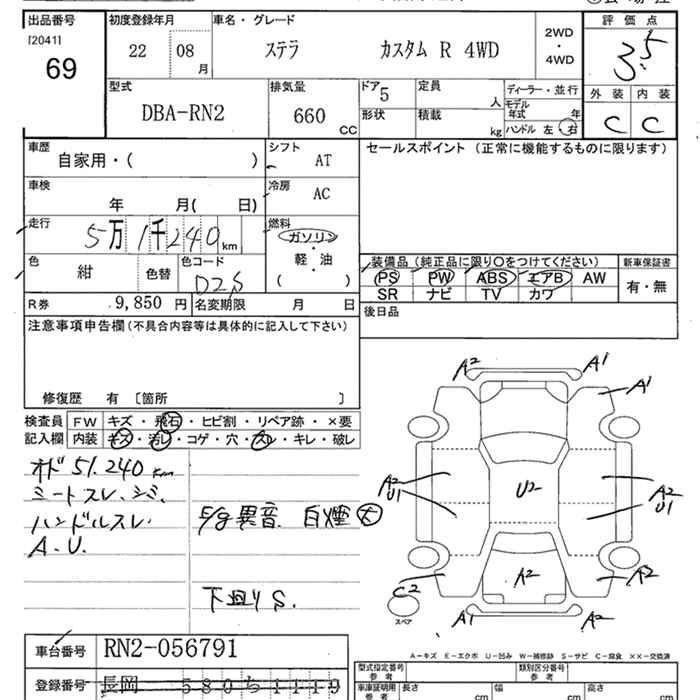 出品番号 初度登録年月 車名・グレード 評価点
[2041] 69
22 08 月 ステラ カスタム R 4WD 2WD・4WD 3.5
型式 排気量 ドア 5 定員 人 ディーラー・並行 外装 内装
DBA-RN2 660 CC 形状 積載 kg モデル年式 年 ハンドル 左 右 C C
車歴 自家用・( ) シフト AT セールスポイント (正常に機能するものに限ります)
車検 年 月( 日) 冷房 AC
走行 5万1千240km 燃料 ガソリン・軽・油 ( )
色 紺 色替 色コード D2S
装備品 (純正品に限り○をつけてください) 新車保証書
PS PW ABS エアB AW 有・無
SR ナビ TV カワ
R券 9,850 円 名変期限 月 日 後日品
注意事項申告欄 (不具合内容等は具体的に記入して下さい)
修復歴 有 〔箇所 〕
検査員記入欄 FW キズ・飛石・ヒビ割・リペア跡・×要
内装 キズ・汚レ・コゲ・穴・スレ・キレ・破レ
オド 51.240 km
シートスレ.シミ.
ハンドルスレ.
A.U.
E/g異音. 白煙 大
下廻りS.
A2 A1
A1
A2 U1 U2 A2 U1
C2 A2 A2
スペア A1 A2
A-キズ E-エクボ U-凹み W-補修跡 S-サビ C-腐食 ××-交換済
車台番号 RN2-056791
型式指定番号 参考 類別区分番号 参考
登録番号 長岡 580ち1119
車庫証明用 参考 長さ cm 幅 cm 高さ cm